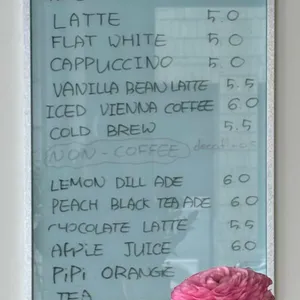 LATTE 5.0
FLAT WHITE 5.0
CAPPUCCINO 5.0
VANILLA BEAN LATTE 5.5
ICED VIENNA COFFEE 6.0
COLD BREW 5.5
NON-COFFEE
LEMON DILL ADE 6.0
PEACH BLACK TEA ADE 6.0
CHOCOLATE LATTE 5.5
APPLE JUICE 6.0
PIPI ORANGE
TEA